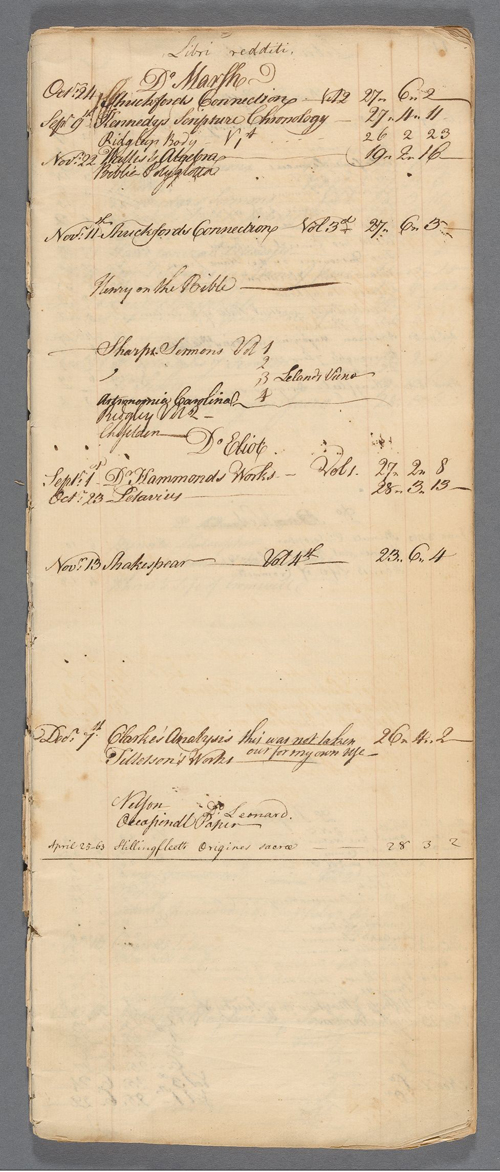 Libri redditi.
Ds Marsh
Octr 24 Shuckfords Connection Vol 2 27 6 2
Sept 9th Kennedys Scripture Chronology 27 4 11
Ridgleys Body V 1st 26 2 23
Novr 22 Wallis's Algebra 19 2 16
Biblia Polyglotta
Novr 11th Shuckfords Connection Vol 3rd 27 6 3
Henry on the Bible
Sharps Sermons Vol 1
2
3 Lelands View
Astronomia Carolina 4
Ridgley Vol 2
Cheselden
Ds Eliot.
Septr 1st Dr Hammonds Works Vol 1. 27 2 8
Octr 23 Petavius 28 3 13
Novr 13 Shakespear Vol 4th 23 6 4
Decr 7th Clarke's Analysis this was not taken 26 4 2
Tillotson's Works out for my own use
Nelson Ds Leonard.
Occasional Paper
April 23-63 Stillingfleets Origines sacræ 28 3 2